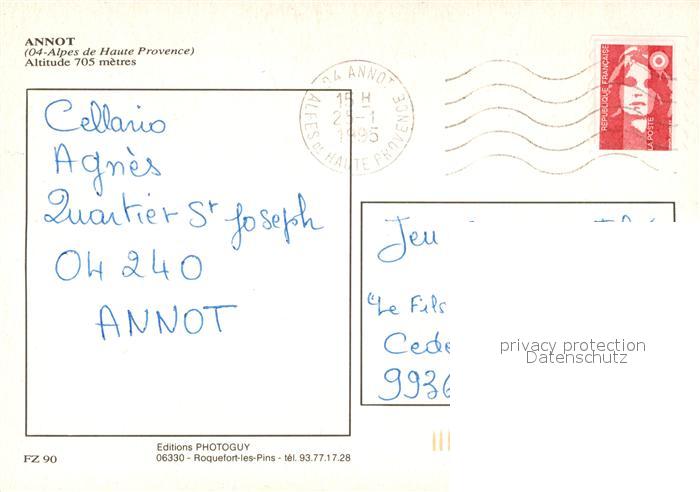 ANNOT
(04-Alpes de Haute Provence)
Altitude 705 mètres
04 ANNOT
15 H
25-1
1995
ALPES DE HAUTE PROVENCE
REPUBLIQUE FRANÇAISE
LA POSTE
Cellario
Agnès
Quartier St Joseph
04 240
ANNOT
Jeu
"Le Fils
Cede
9936
privacy protection
Datenschutz
Editions PHOTOGUY
06330 - Roquefort-les-Pins - tél. 93.77.17.28
FZ 90